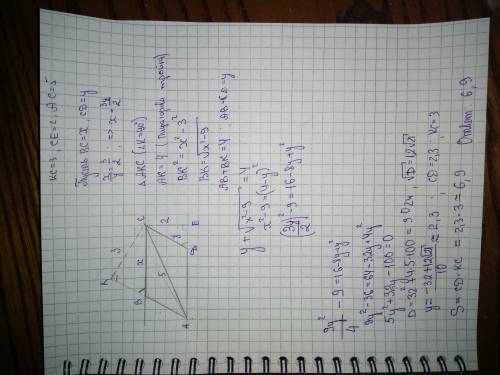 KC=3, CE=2, AC=5
Пусть BC=x, CD=y
x/y = 3/2 => x = 3y/2
△ AKC (∠K=90)
AK=4 (Пифагорова тройка)
BK² = x² - 3²
BK = √x²-9
AB+BK=4, AB=CD=y
y + √x²-9 = 4
x²-9 = (4-y)²
(3y/2)² - 9 = 16-8y+y²
9y²/4 - 9 = 16-8y+y²
9y²-36 = 64-32y+4y²
5y²+32y-100=0
D = 32²+4·5·100 = 3024, √D = 12√21
y = -32+12√21/10 ≈ 2,3 CD=2,3, KC=3
S = CD·KC = 2,3·3 = 6,9
Ответ 6,9
K
3
B
x
C
5
2
y
A
D
E